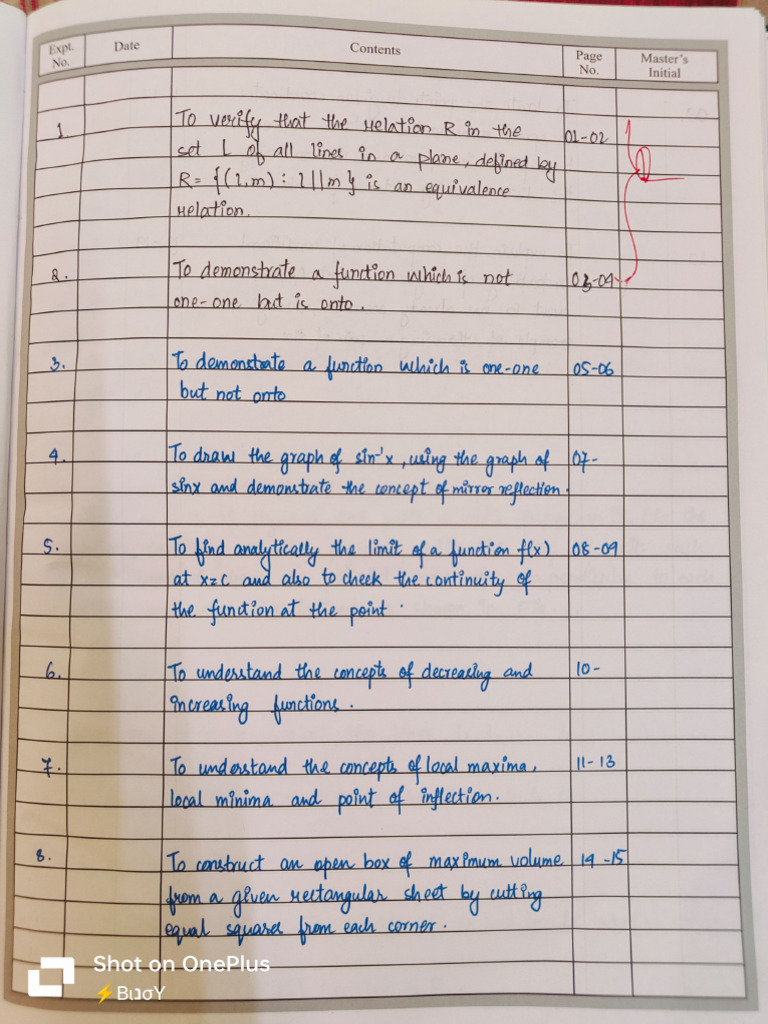 Expt. No. Date Contents Page No. Master's Initial
1. To verify that the relation R in the 01-02
set L of all lines in a plane, defined by
R= {(l,m) : l||m} is an equivalence
relation.
2. To demonstrate a function which is not 03-04
one-one but is onto.
3. To demonstrate a function which is one-one 05-06
but not onto
4. To draw the graph of sin⁻¹x, using the graph of 07-
sinx and demonstrate the concept of mirror reflection.
5. To find analytically the limit of a function f(x) 08-09
at x=c and also to check the continuity of
the function at the point.
6. To understand the concepts of decreasing and 10-
increasing functions.
7. To understand the concepts of local maxima, 11-13
local minima and point of inflection.
8. To construct an open box of maximum volume 14-15
from a given rectangular sheet by cutting
equal squares from each corner.
Shot on OnePlus